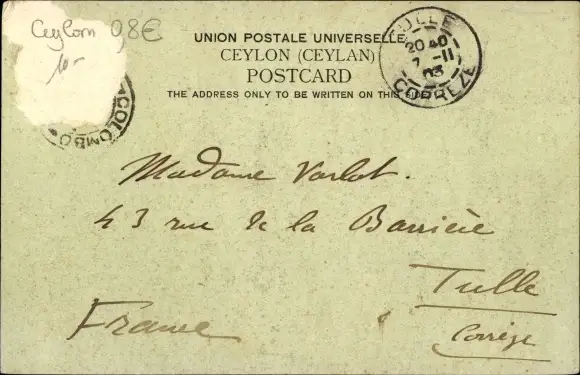 Ceylon 98€
10-
UNION POSTALE UNIVERSELLE
CEYLON (CEYLAN)
POSTCARD
THE ADDRESS ONLY TO BE WRITTEN ON THIS SIDE
TULLE
20 40
7 -11
03
CORREZE
COLOMBO
Madame Varlot.
43 rue de la Barrière
Tulle
Corrèze
France